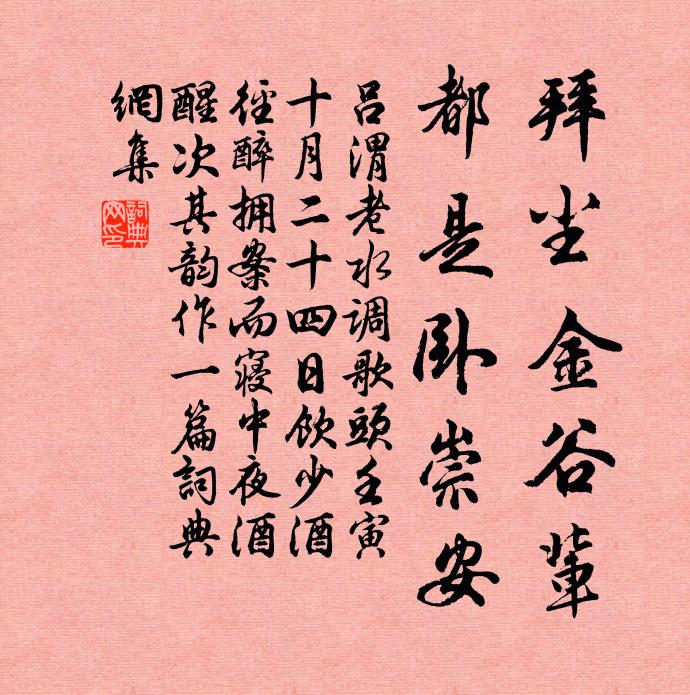 拜尘金谷辈
都是卧崇安
吕渭老水调歌头壬寅
十月二十四日饮少酒
径醉拥案而寝中夜酒
醒次其韵作一篇词典
网集
词典网印